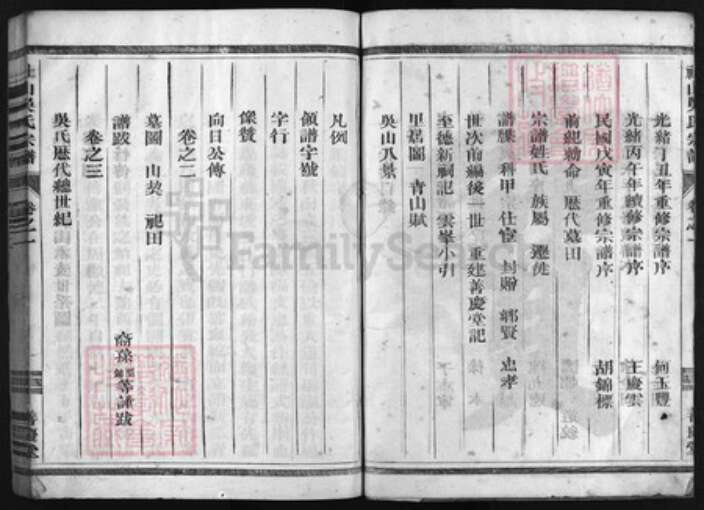 光緒丁丑年重修宗譜序 何玉豐
光緒丙午年續修宗譜序 王慶雲
民國戊寅年重修宗譜序 胡錦標
前朝勅命 歷代墓田
宗譜姓氏 族屬 遷徙
譜牒 科甲 仕宦 封贈 鄉賢 忠孝
世次前編後一世 重建善慶堂記
至德新祠記 雲峯小引
里居圖 青山賦
吳山八景
凡例
領譜字號
字行
像贊
向日公傳
卷之二
墓圖 山契 祀田
譜跋 裔孫 等謹跋
卷之三
吳氏歷代總世紀
山吳氏宗譜 卷之一
善慶堂
FamilySearch